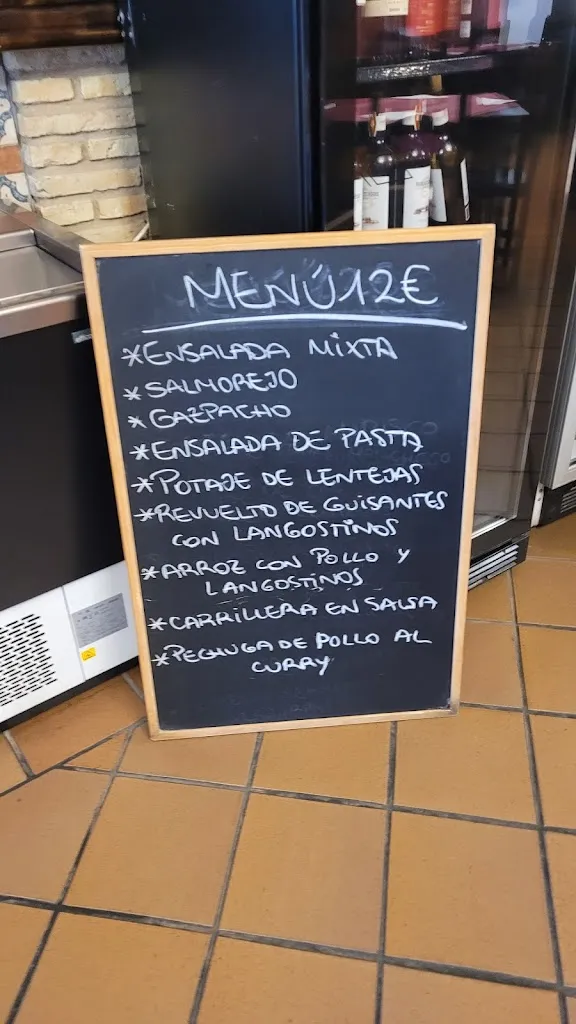 MENÚ 12€
*ENSALADA MIXTA
*SALMOREJO
*GAZPACHO
*ENSALADA DE PASTA
*POTAJE DE LENTEJAS
*REVUELTO DE GUISANTES
CON LANGOSTINOS
*ARROZ CON POLLO Y
LANGOSTINOS
*CARRILLERA EN SALSA
*PECHUGA DE POLLO AL
CURRY